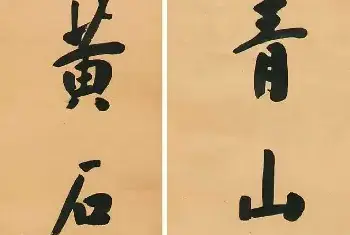 青山
黄石